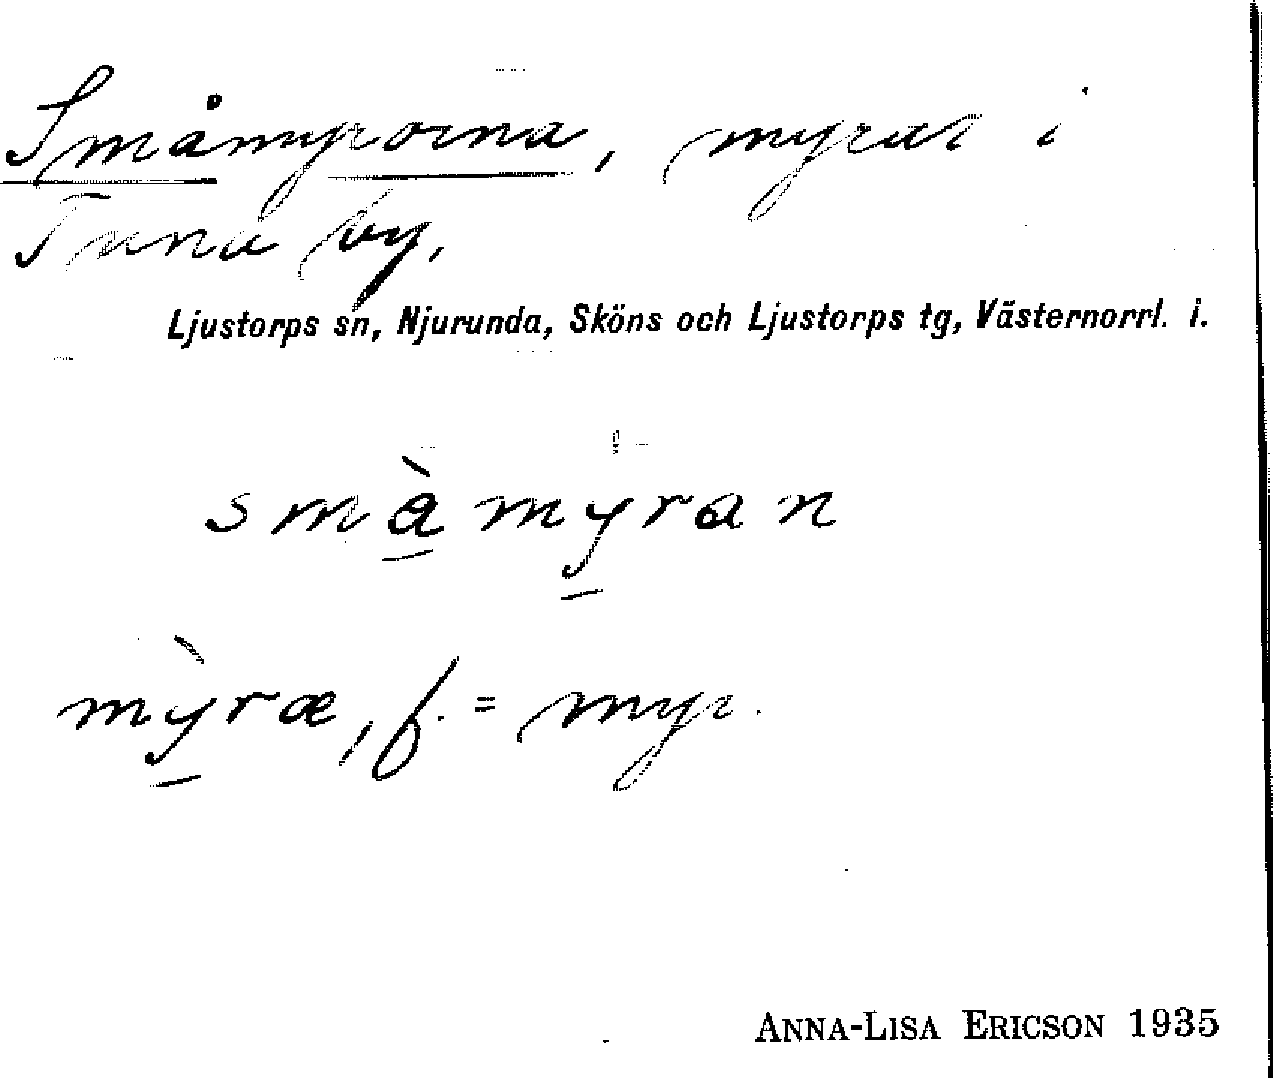 Småmyrorna, myrar i
Tuna by,
Ljustorps sn, Njurunda, Sköns och Ljustorps tg, Västernorrl. l.
smà̱my̱ran
mỳ̱ræ, f. = myr.
ANNA-LISA ERICSON 1935